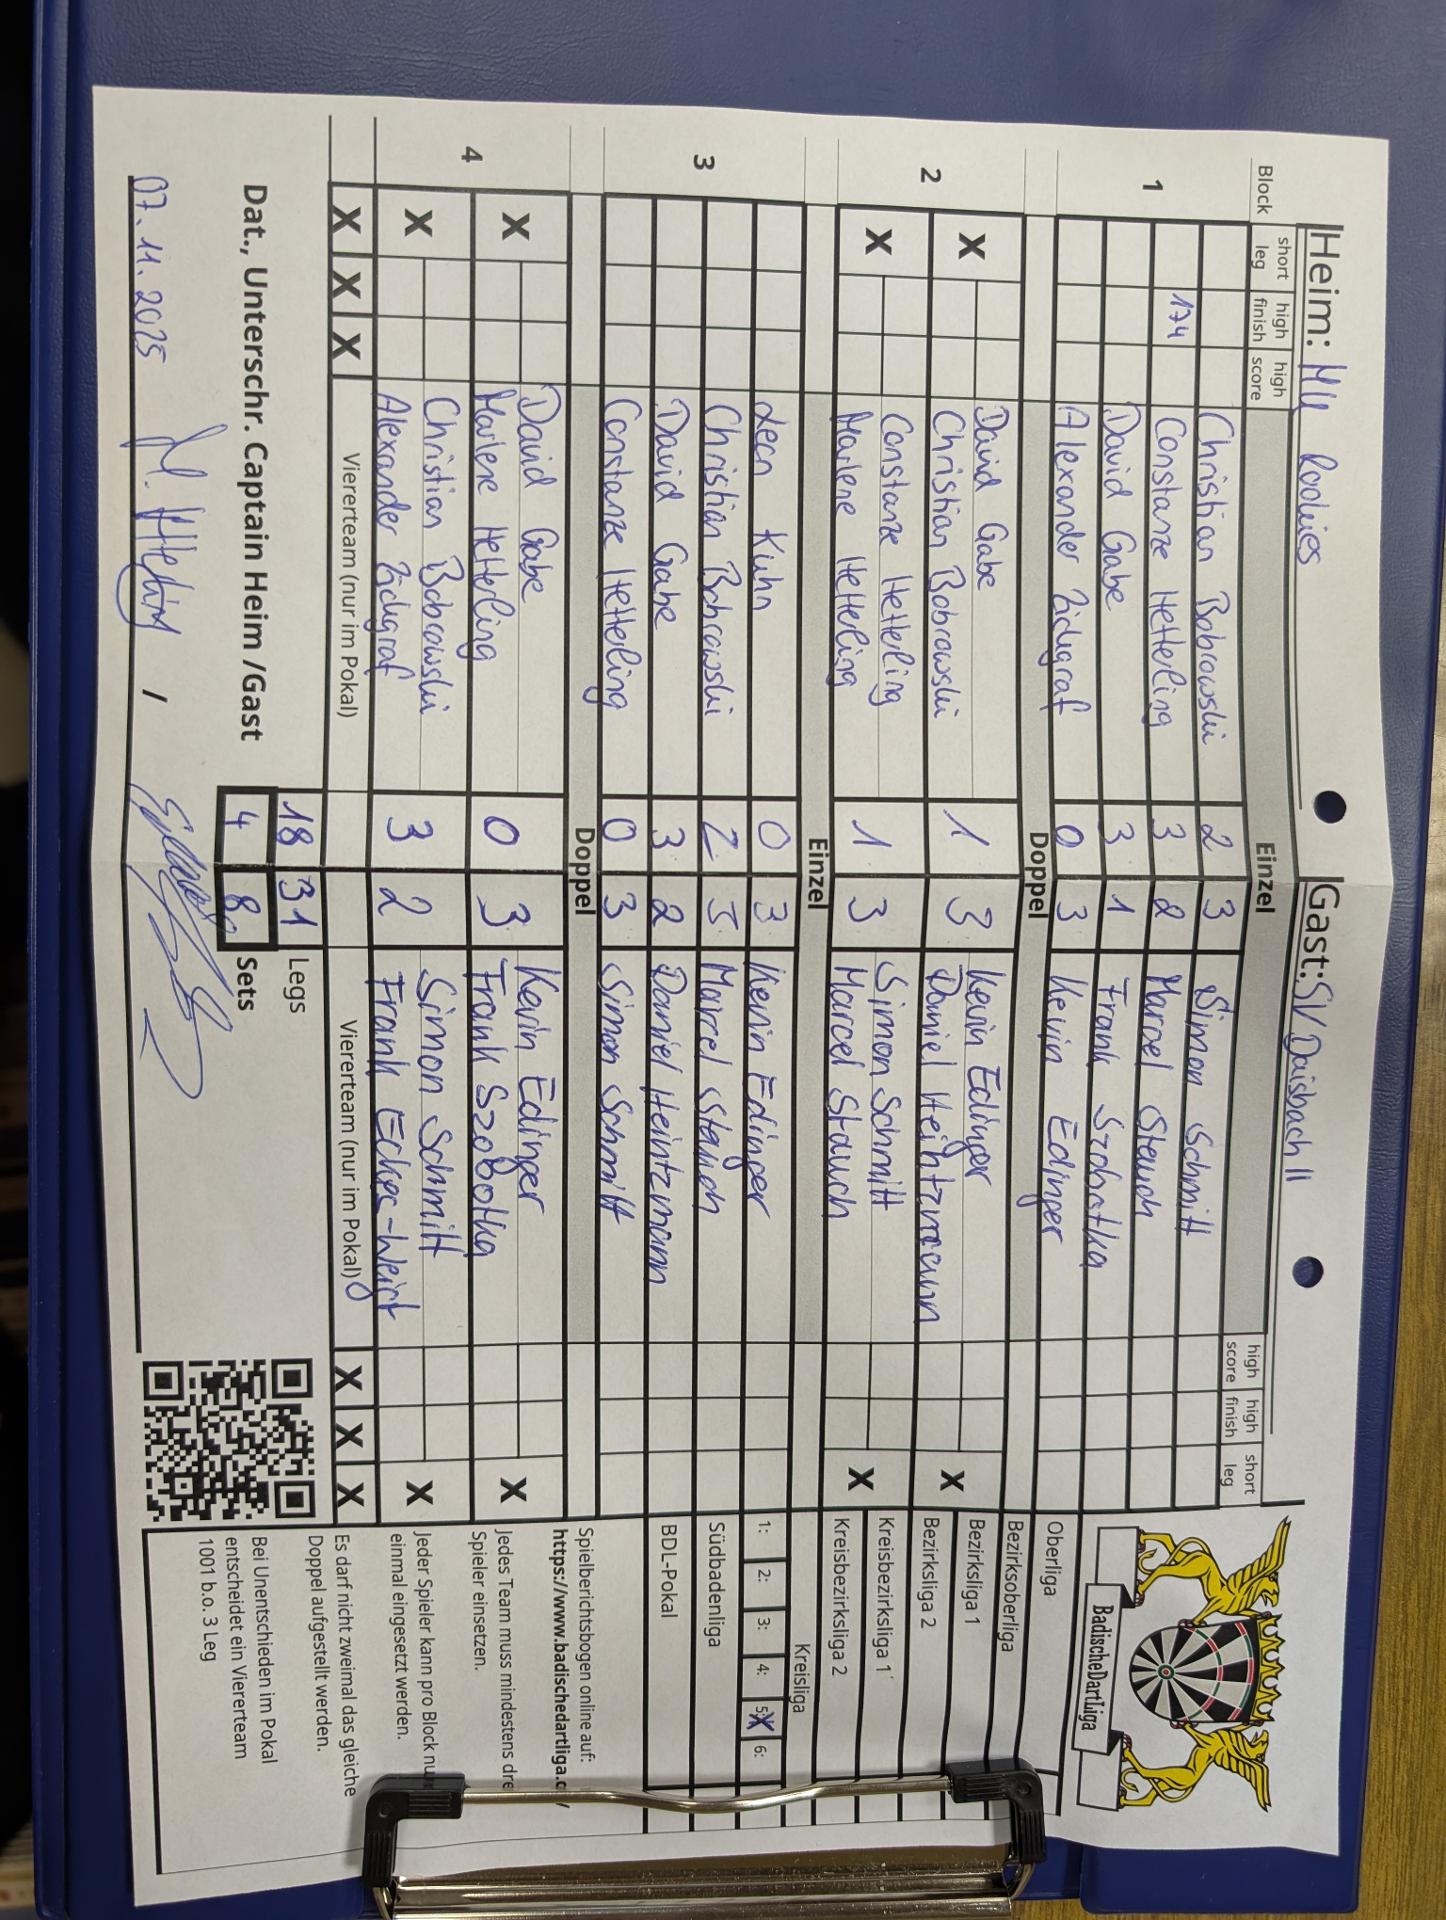 Heim: Mlle Rookies Gast: SV Daisbach II
Block short leg high finish high score Einzel high score high finish short leg
1
Christian Bobrowski 2 3 Simon Schmitt
174 Constanze Hetterling 3 2 Marcel Stauch
David Gabe 3 1 Frank Szobotka
Alexander Zidgraf 0 3 Kevin Edinger
Doppel
2
X David Gabe 1 3 Kevin Edinger X
Christian Bobrowski Daniel Heintzmann
X Constanze Hetterling 1 3 Simon Schmitt X
Marlene Hetterling Marcel Stauch
Einzel
3
Leon Kuhn 0 3 Kevin Edinger
Christian Bobrowski 2 3 Marcel Stauch
David Gabe 3 2 Daniel Heintzmann
Constanze Hetterling 0 3 Simon Schmitt
Doppel
4
X David Gabe 0 3 Kevin Edinger X
Marlene Hetterling Frank Szobotka
X Christian Bobrowski 3 2 Simon Schmitt X
Alexander Zidgraf Frank Ecker-Weigt
X X X Viererteam (nur im Pokal) Viererteam (nur im Pokal) X X X
18 31 Legs
Dat., Unterschr. Captain Heim /Gast 4 8 Sets
07.11.2025 /
BadischeDartLiga
Oberliga
Bezirksoberliga
Bezirksliga 1
Bezirksliga 2
Kreisbezirksliga 1
Kreisbezirksliga 2
Kreisliga
1: 2: 3: 4: 5: X 6:
Südbadenliga
BDL-Pokal
Spielberichtsbogen online auf:
https://www.badischedartliga.
Jedes Team muss mindestens dre
Spieler einsetzen.
Jeder Spieler kann pro Block nu
einmal eingesetzt werden.
Es darf nicht zweimal das gleiche
Doppel aufgestellt werden.
Bei Unentschieden im Pokal
entscheidet ein Viererteam
1001 b.o. 3 Leg